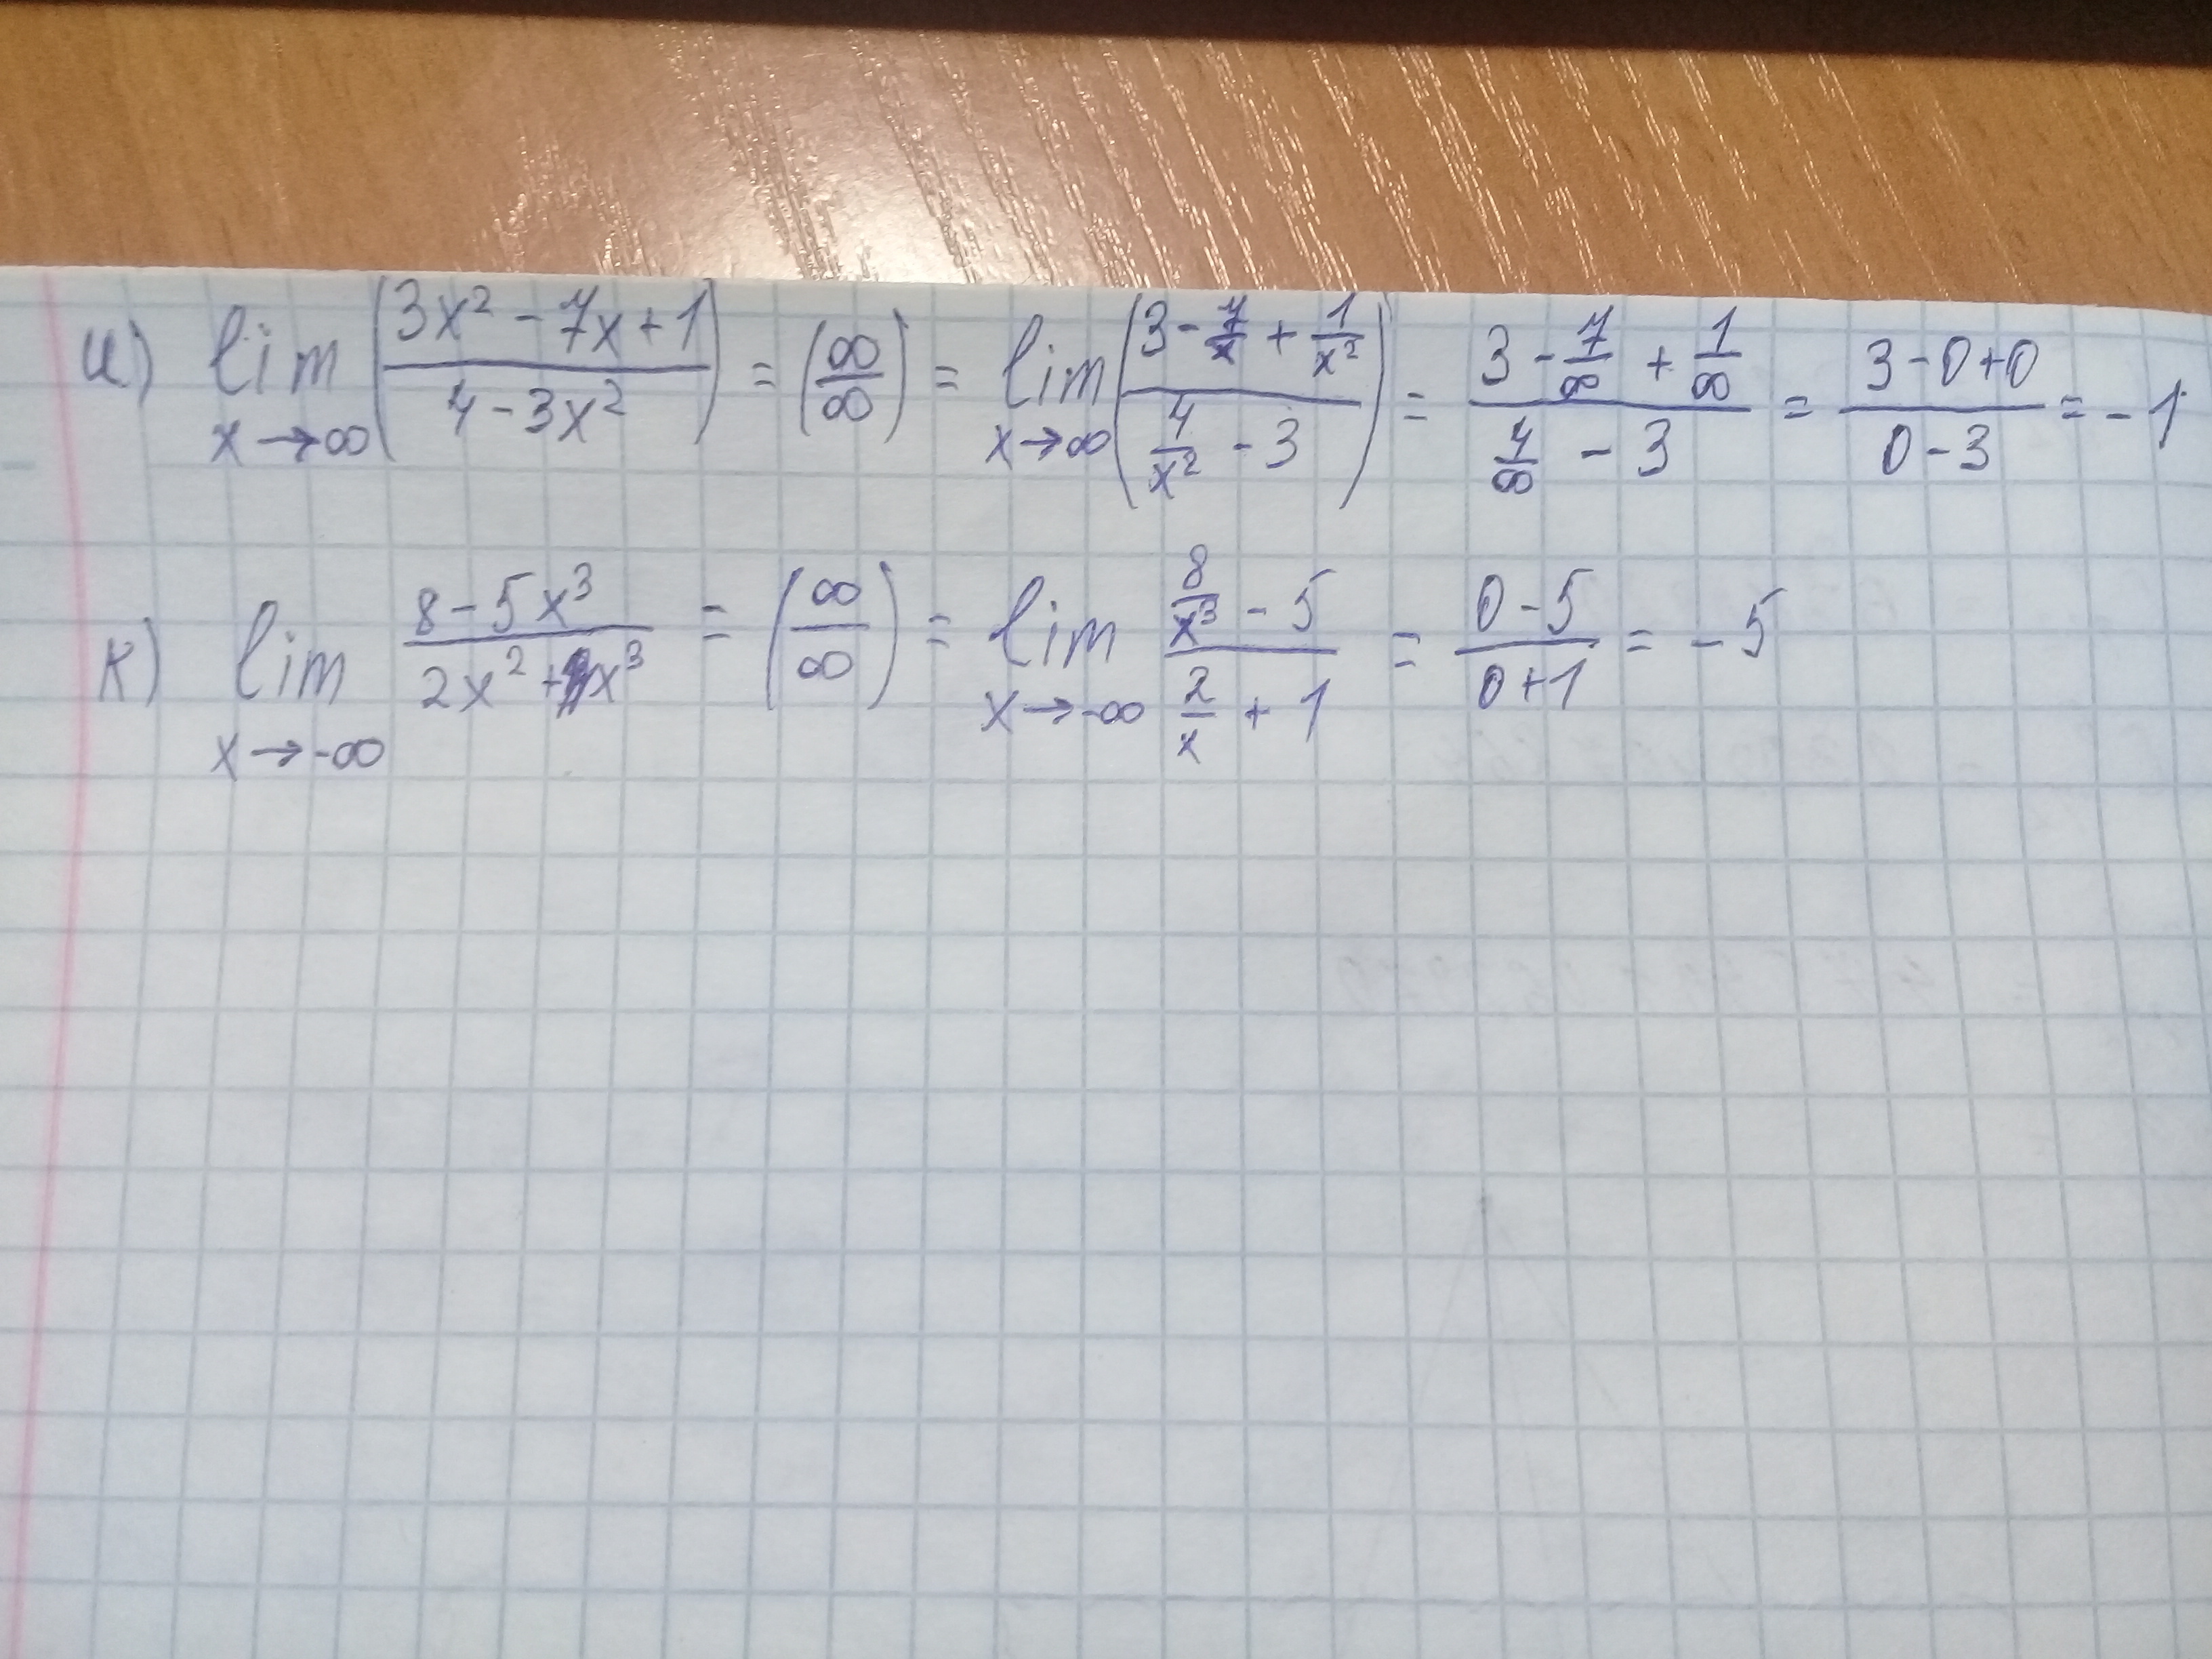 и) lim x→∞ ((3x² - 7x + 1)/(4 - 3x²)) = (∞/∞) = lim x→∞ ((3 - 7/x + 1/x²)/(4/x² - 3)) = (3 - 7/∞ + 1/∞)/(4/∞ - 3) = (3 - 0 + 0)/(0 - 3) = -1
к) lim x→-∞ (8 - 5x³)/(2x² + x³) = (∞/∞) = lim x→-∞ (8/x³ - 5)/(2/x + 1) = (0 - 5)/(0 + 1) = -5